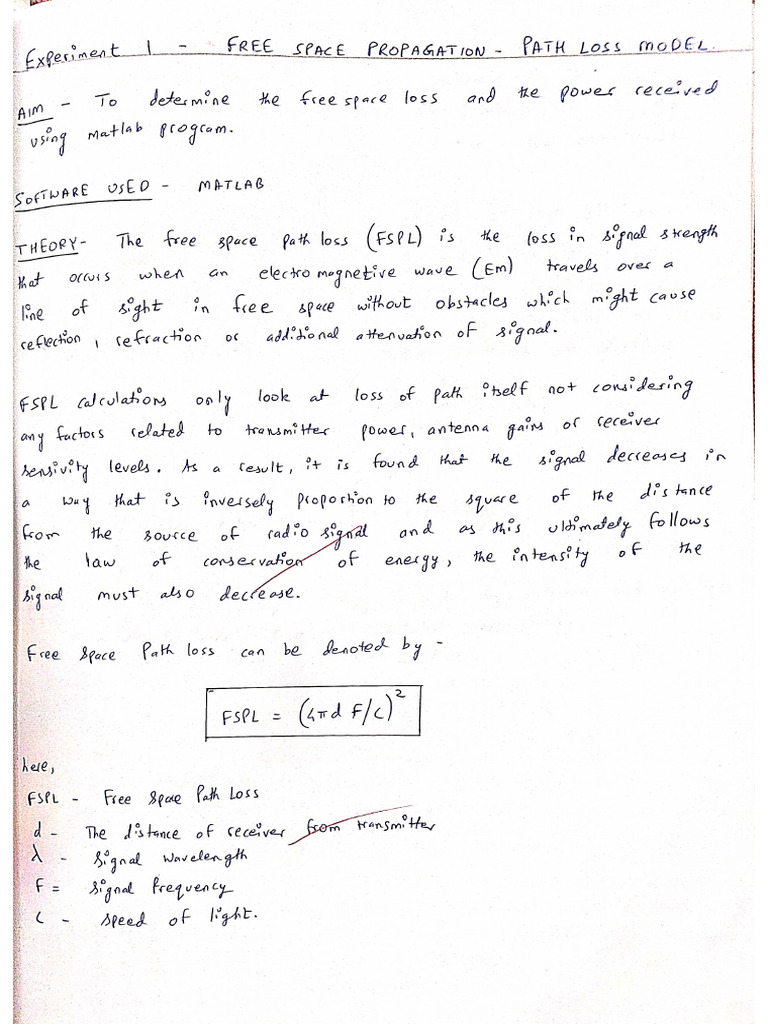 Experiment 1 - FREE SPACE PROPAGATION - PATH LOSS MODEL.
AIM - To determine the free space loss and the power received
using matlab program.
SOFTWARE USED - MATLAB
THEORY - The free space path loss (FSPL) is the loss in signal strength
that occurs when an electro magnetive wave (Em) travels over a
line of sight in free space without obstacles which might cause
reflection, refraction or additional attenuation of signal.
FSPL calculations only look at loss of path itself not considering
any factors related to transmitter power, antenna gains or receiver
sensivity levels. As a result, it is found that the signal decreases in
a way that is inversely proportion to the square of the distance
from the source of radio signal and as this ultimately follows
the law of conservation of energy, the intensity of the
signal must also decrease.
Free space Path loss can be denoted by -
FSPL = (4πd F/c)²
here,
FSPL - Free Space Path Loss
d - The distance of receiver from transmitter
λ - Signal wavelength
F = Signal Frequency
c - speed of light.